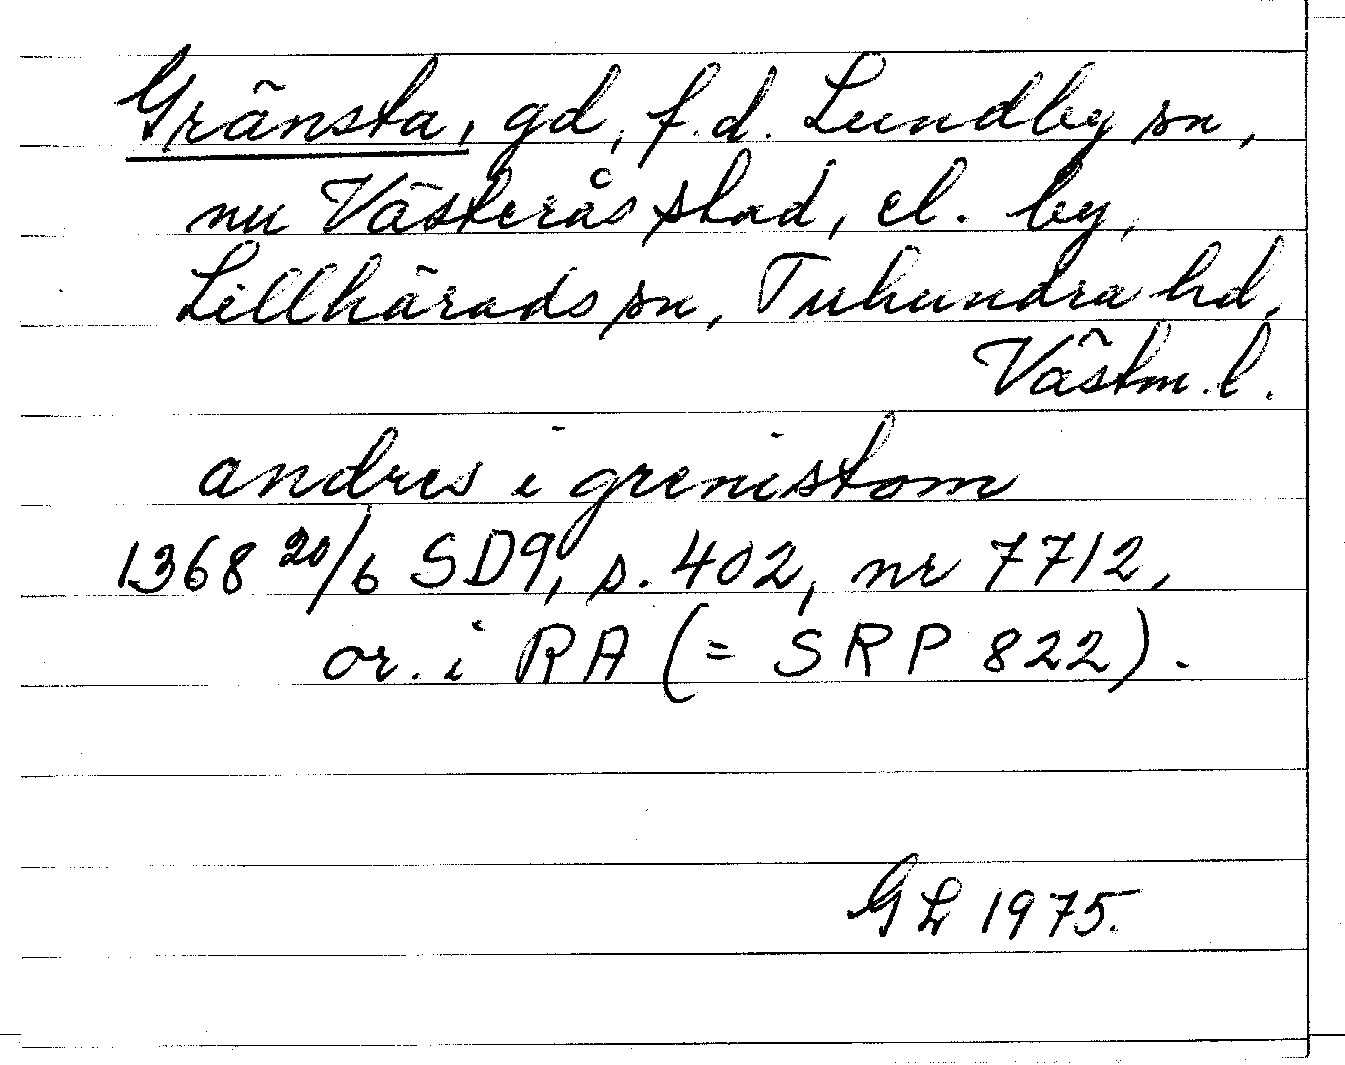 Gränsta, gd, f.d. Lundby sn,
nu Västerås stad, el. by,
Lillhärads sn, Tuhundra hd,
Västm. l.
andres i grenistom
1368 20/6 SD9, s. 402, nr 7712,
or. i RA (= SRP 822).
GL 1975.